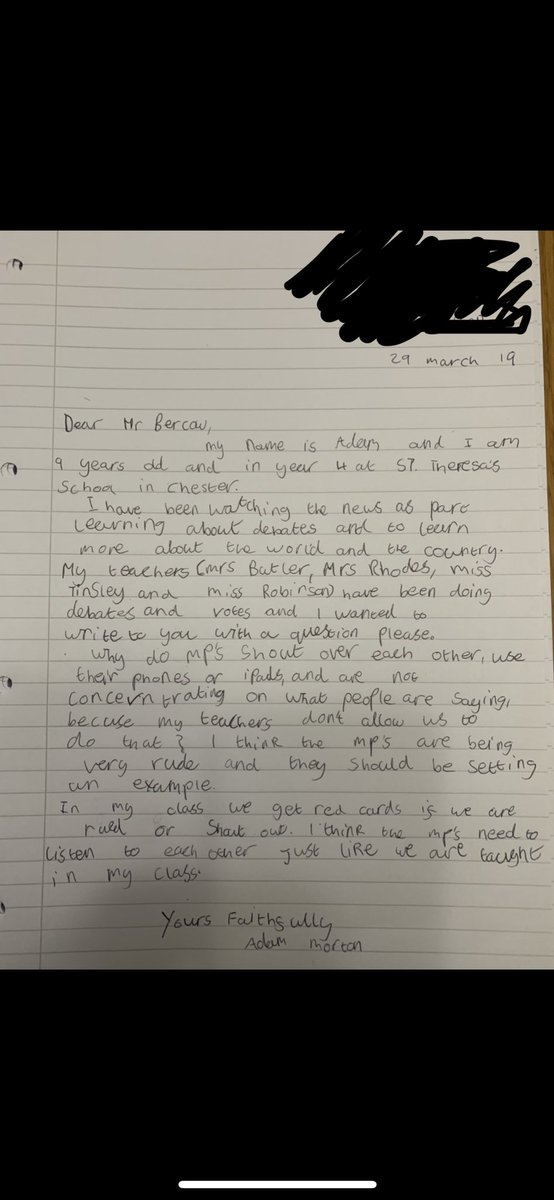 29 march 19
Dear Mr Bercow,
my name is Adam and I am
9 years old and in year 4 at ST. Theresa's
School in Chester.
I have been watching the news as part
learning about debates and to learn
more about the world and the country.
My teachers (mrs Butler, Mrs Rhodes, miss
Tinsley and miss Robinson) have been doing
debates and votes and I wanted to
write to you with a question please.
. why do mp's shout over each other, use
their phones or ipads, and are not
concerntrating on what people are saying,
becuse my teachers dont allow us to
do that? I think the mp's are being
very rude and they should be setting
an example.
In my class we get red cards if we are
rued or shout out. I think the mp's need to
listen to each other just like we are taught
in my class.
Yours Faithfully
Adam morton